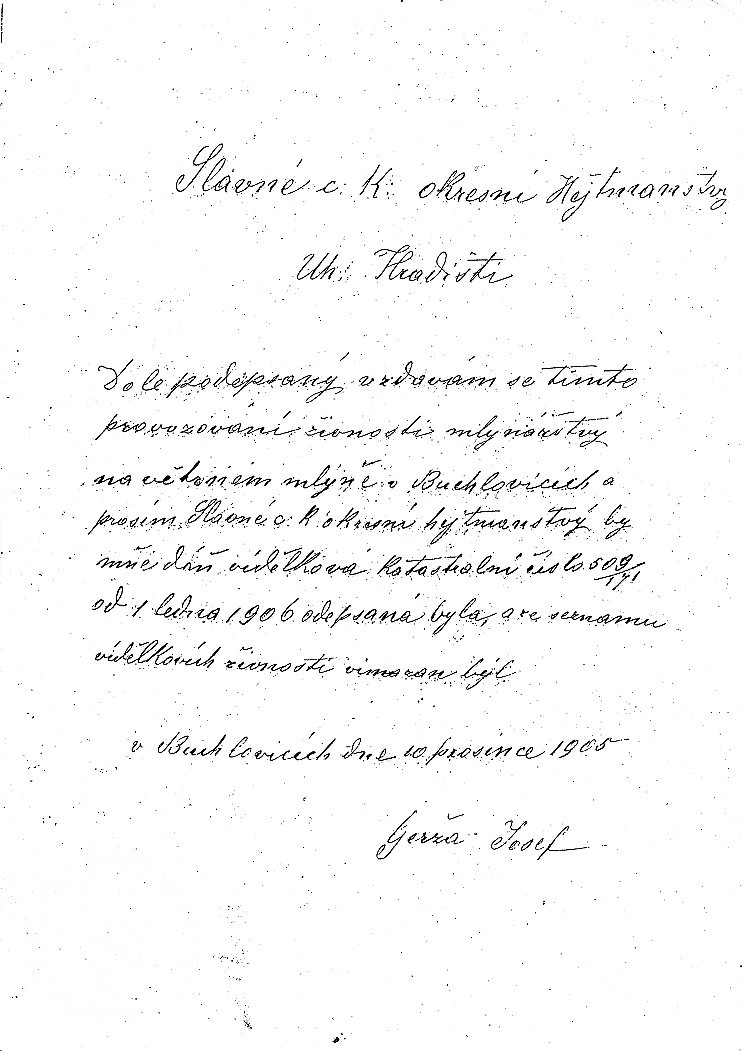 Slavné c. K. okresní Hejtmanství
Uh. Hradišti
Dole podepsaný vzdavám se tímto
provozování živnosti mlynářstvý
na větoriem mlýně v Buchlovicích a
prosím Slavné c. K okresní hejtmanstvý by
mňe daň vídělková katastralní číslo 509/171
od 1 ledna 1906 odepsaná byla, a ze seznamu
vídělkovích živnosti vimazan býl
v Buchlovicích dne 10 prosince 1905
Gerža Josef